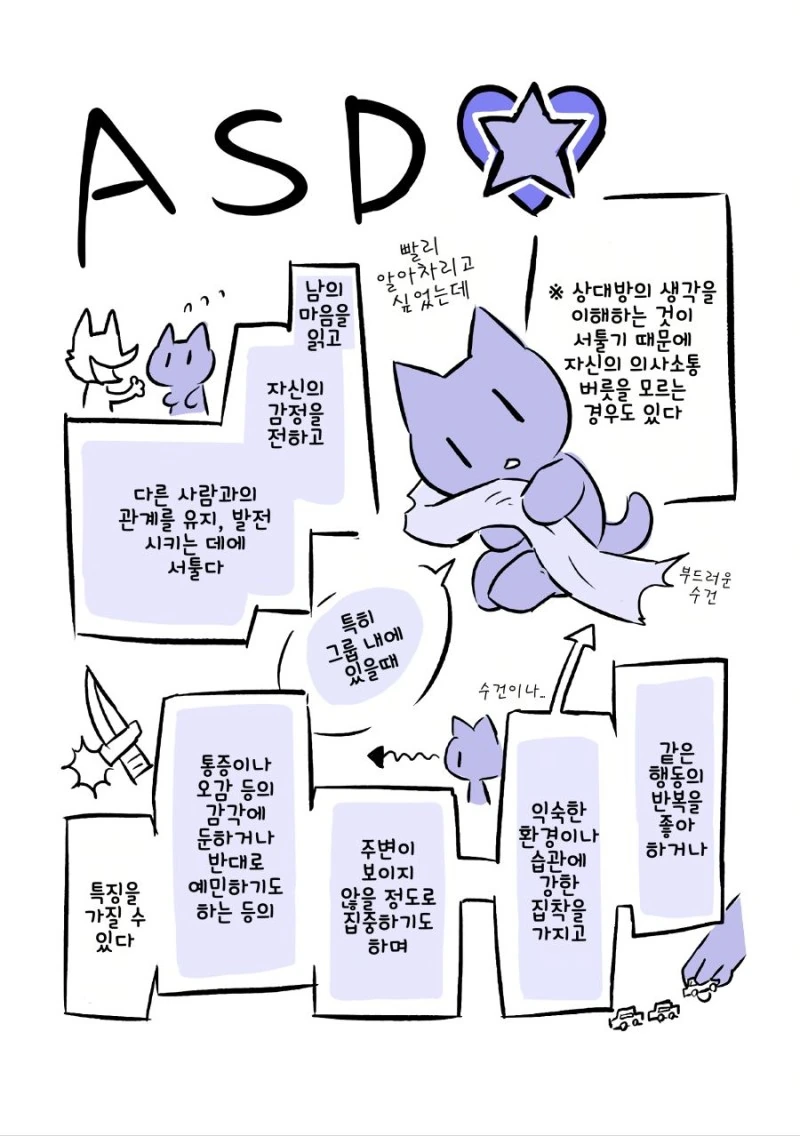 ASD
빨리
알아차리고
싶었는데
※ 상대방의 생각을
이해하는 것이
서툴기 때문에
자신의 의사소통
버릇을 모르는
경우도 있다
남의
마음을
읽고
자신의
감정을
전하고
다른 사람과의
관계를 유지, 발전
시키는 데에
서툴다
부드러운
수건
특히
그룹 내에
있을때
같은
행동의
반복을
좋아
하거나
수건이나..
익숙한
환경이나
습관에
강한
집착을
가지고
주변이
보이지
않을 정도로
집중하기도
하며
통증이나
오감 등의
감각에
둔하거나
반대로
예민하기도
하는 등의
특징을
가질 수
있다